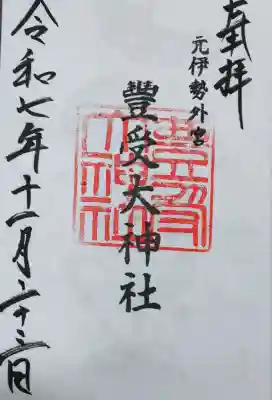 奉拝
元伊勢外宮
豐受大神社
令和七年十一月二十三日